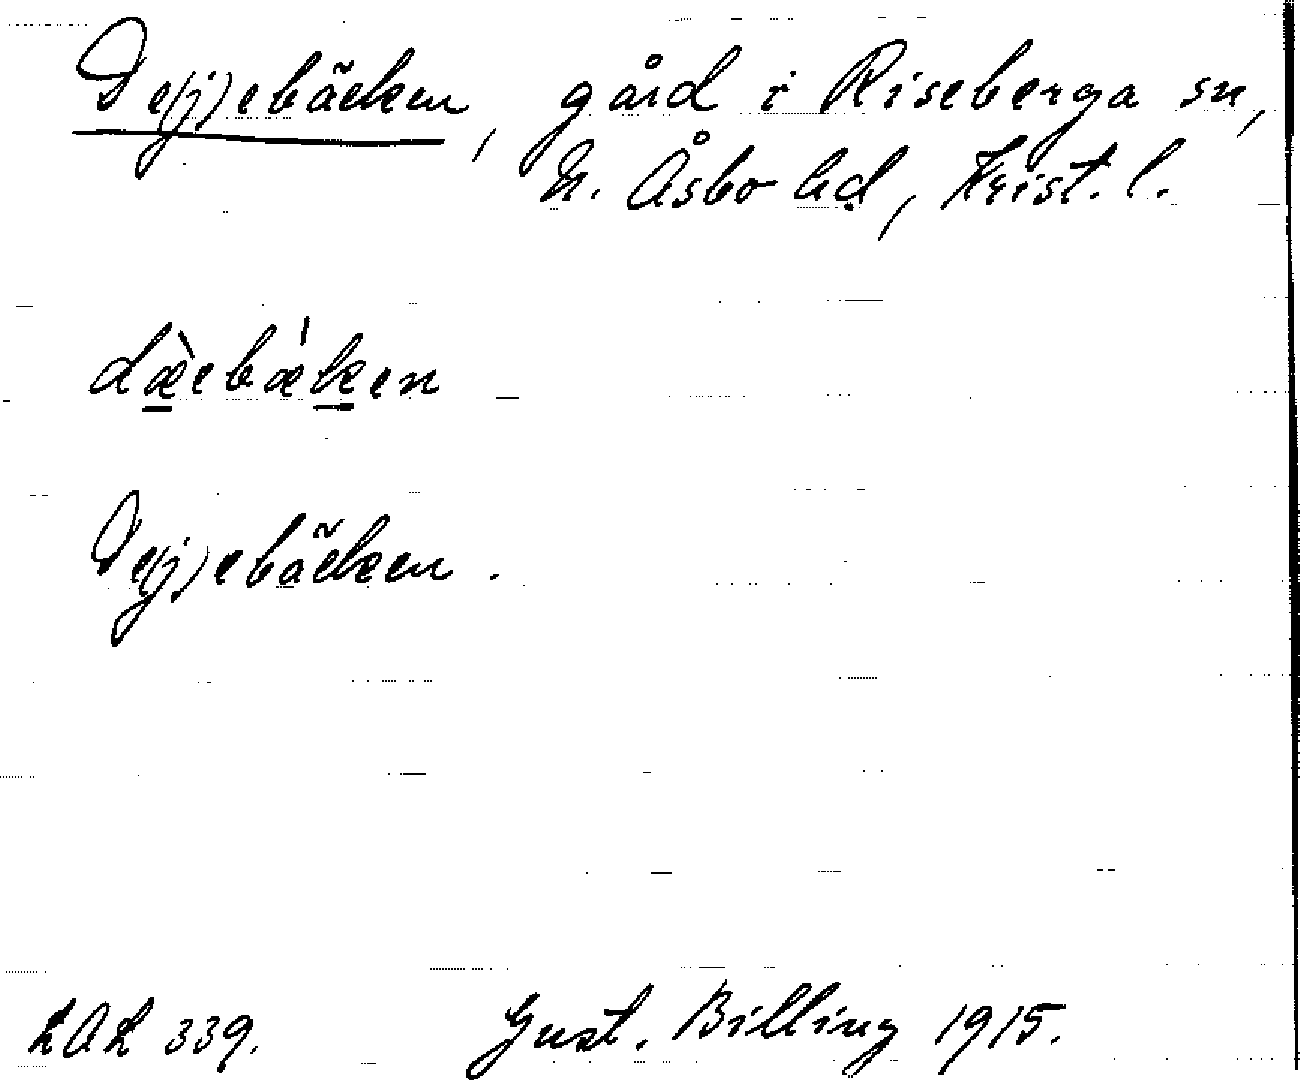 De(j)ebäcken, gård i Riseberga sn,
N. Åsbo hd, Krist. l.
dæ̀ebæ'ken
De(j)ebäcken.
LAL 339. Gust. Billing 1915.